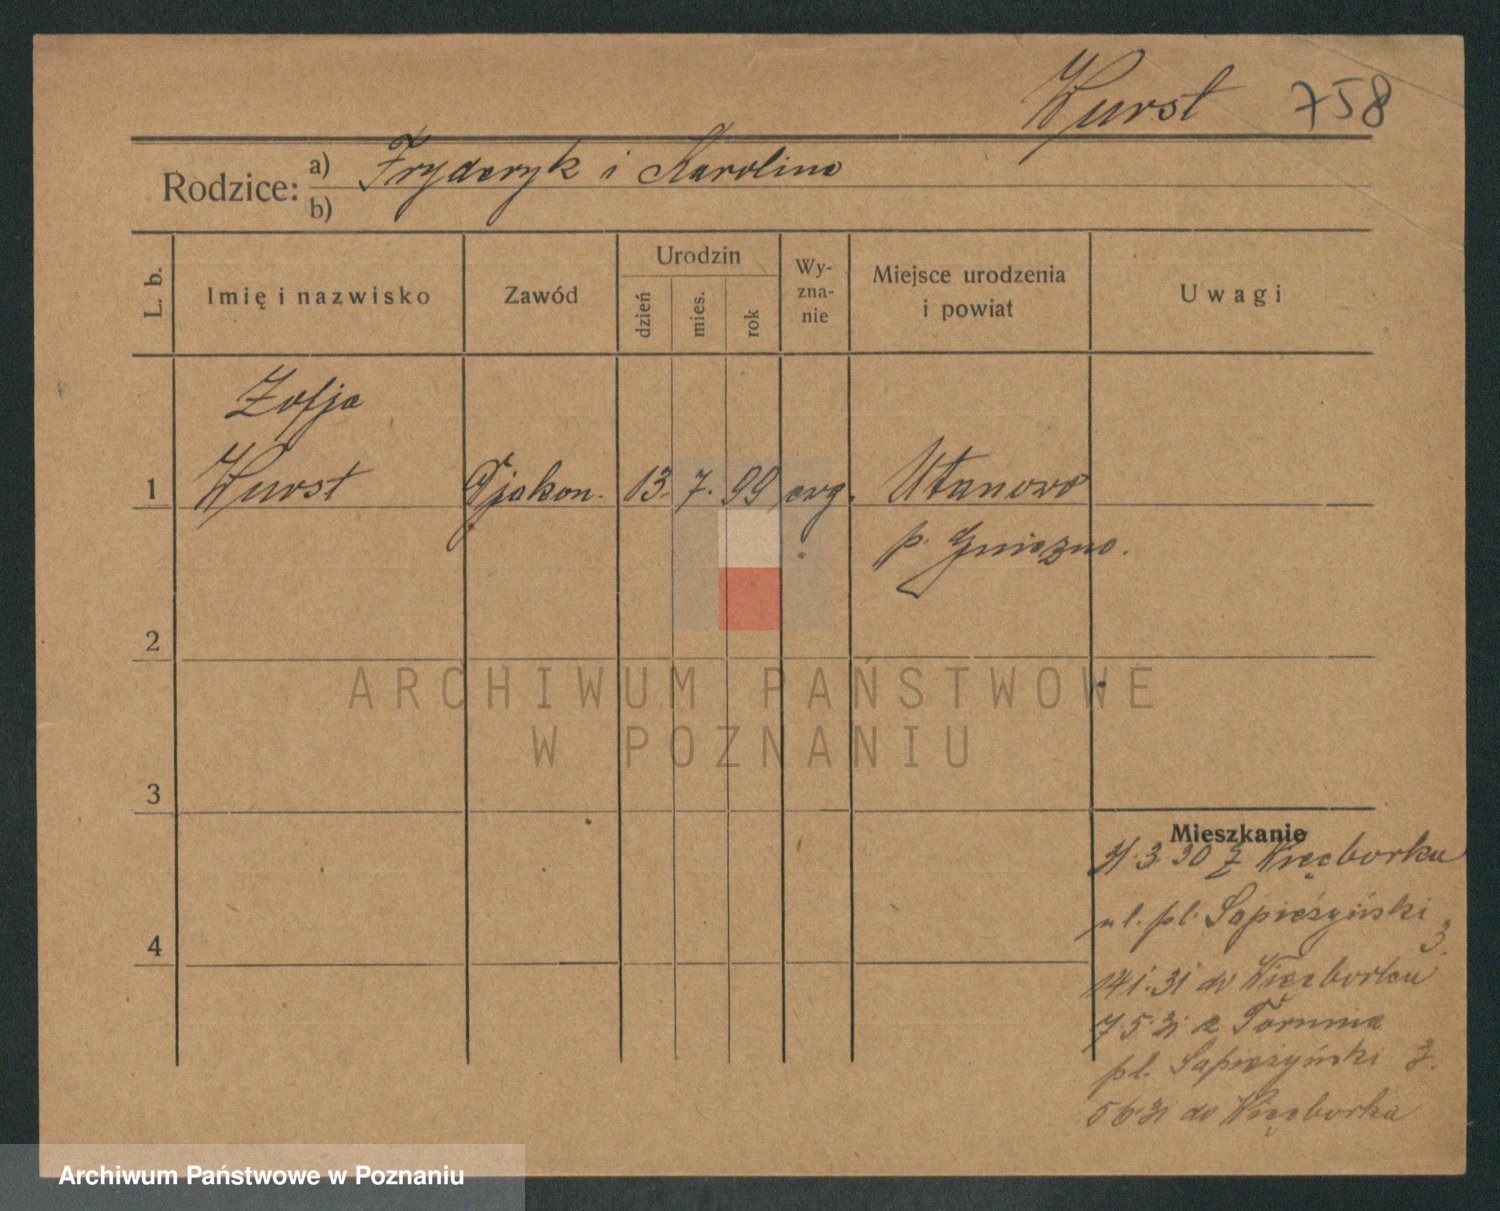 Wurst 758
Rodzice: a) Fryderyk i Karolina
b)
L. b.
Imię i nazwisko
Zawód
Urodzin
dzień
mies.
rok
Wy-
zna-
nie
Miejsce urodzenia
i powiat
Uwagi
Zofja
1 Wurst Djakon. 13. 7. 99 ewg. Ułanowo
p. Gniezno.
2
3
4
Mieszkanie
31.3.30 z Więcborku
ul. pl. Sapieżyński
3.
14 1. 31 do Więcborku
7.5.31 z Torunia
pl. Sapieżyński 3.
5 6 31 do Więcborka
ARCHIWUM PAŃSTWOWE
W POZNANIU
Archiwum Państwowe w Poznaniu